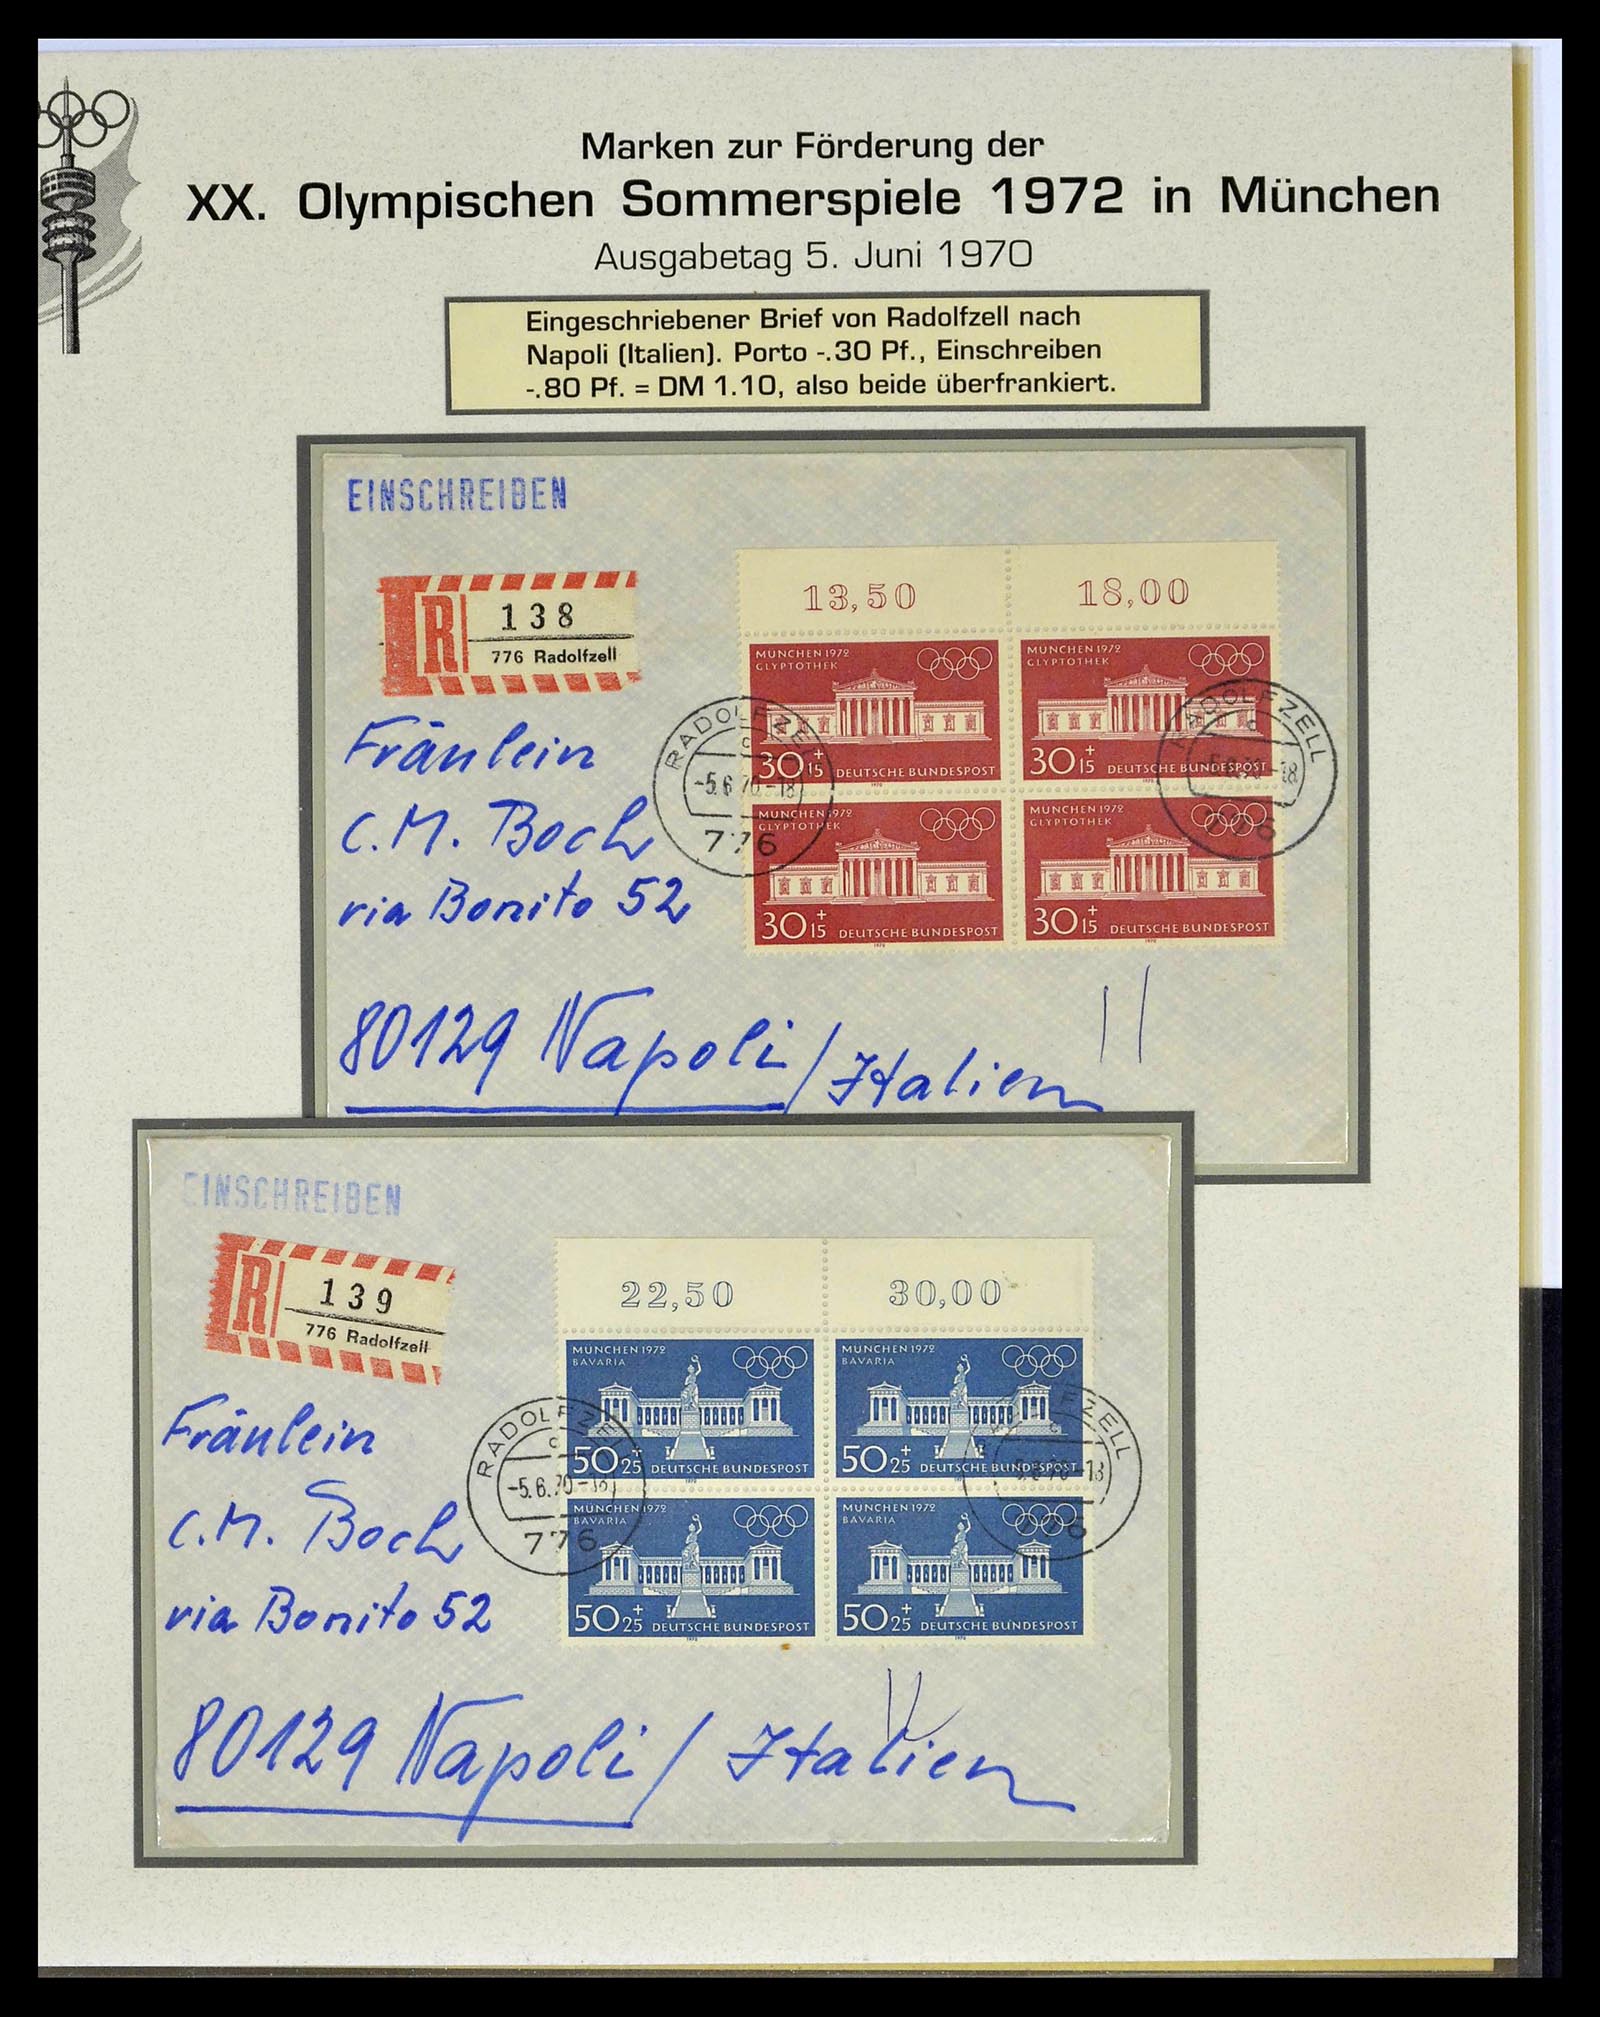 Marken zur Förderung der
XX. Olympischen Sommerspiele 1972 in München
Ausgabetag 5. Juni 1970
Eingeschriebener Brief von Radolfzell nach
Napoli (Italien). Porto -.30 Pf., Einschreiben
-.80 Pf. = DM 1.10, also beide überfrankiert.
EINSCHREIBEN
13,50 18,00
R 138
776 Radolfzell
MÜNCHEN 1972 MÜNCHEN 1972
GLYPTOTHEK GLYPTOTHEK
30+15 DEUTSCHE BUNDESPOST 30+15 DEUTSCHE BUNDESPOST
1970 1970
MÜNCHEN 1972 MÜNCHEN 1972
GLYPTOTHEK GLYPTOTHEK
30+15 DEUTSCHE BUNDESPOST 30+15 DEUTSCHE BUNDESPOST
1970 1970
RADOLFZELL
c
-5.6.70-18
776
RADOLFZELL
c
-18
776
Fräulein
C.M. Boch
via Bonito 52
80129 Napoli / Italien
EINSCHREIBEN
22,50 30,00
R 139
776 Radolfzell
MÜNCHEN 1972 MÜNCHEN 1972
BAVARIA BAVARIA
50+25 DEUTSCHE BUNDESPOST 50+25 DEUTSCHE BUNDESPOST
1970 1970
MÜNCHEN 1972 MÜNCHEN 1972
BAVARIA BAVARIA
50+25 DEUTSCHE BUNDESPOST 50+25 DEUTSCHE BUNDESPOST
1970 1970
RADOLFZELL
c
-5.6.70-18
776
FZELL
-5.6.70-18
776
Fräulein
C.M. Boch
via Bonito 52
80129 Napoli / Italien